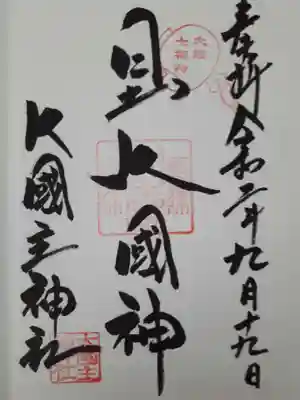 奉拝 令和二年九月十九日
大阪
七福神
日出大國神
大國主神社
大國主
神社